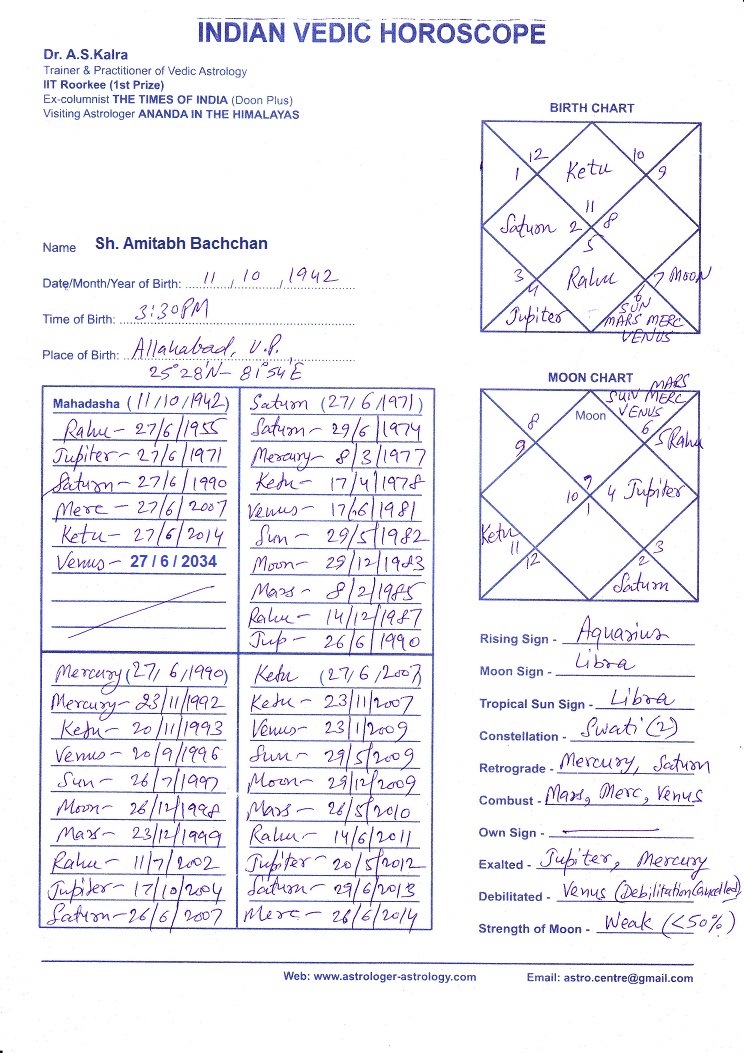 INDIAN VEDIC HOROSCOPE
Dr. A.S.Kalra
Trainer & Practitioner of Vedic Astrology
IIT Roorkee (1st Prize)
Ex-columnist THE TIMES OF INDIA (Doon Plus)
Visiting Astrologer ANANDA IN THE HIMALAYAS
Name Sh. Amitabh Bachchan
Date/Month/Year of Birth: 11 / 10 / 1942
Time of Birth: 3:30PM
Place of Birth: Allahabad, U.P.
25°28'N – 81°54'E
BIRTH CHART
12 10
1 Ketu 9
11
Saturn 2 8
5
3 Rahu 7 Moon
4 6
Jupiter SUN
MARS MERC
VENUS
MOON CHART
MARS
SUN MERC
8 Moon VENUS
6
9 5 Rahu
7
10 4 Jupiter
1
Ketu
11 3
12 2
Saturn
Mahadasha (11/10/1942)
Rahu – 27/6/1955
Jupiter – 27/6/1971
Saturn – 27/6/1990
Merc – 27/6/2007
Ketu – 27/6/2014
Venus – 27 / 6 / 2034
Saturn (27/6/1971)
Saturn – 29/6/1974
Mercury – 8/3/1977
Ketu – 17/4/1978
Venus – 17/6/1981
Sun – 29/5/1982
Moon – 29/12/1983
Mars – 8/2/1985
Rahu – 14/12/1987
Jup – 26/6/1990
Mercury (27/6/1990)
Mercury – 23/11/1992
Ketu – 20/11/1993
Venus – 20/9/1996
Sun – 26/7/1997
Moon – 26/12/1998
Mars – 23/12/1999
Rahu – 11/7/2002
Jupiter – 17/10/2004
Saturn – 26/6/2007
Ketu (27/6/2007)
Ketu – 23/11/2007
Venus – 23/1/2009
Sun – 29/5/2009
Moon – 29/12/2009
Mars – 26/5/2010
Rahu – 14/6/2011
Jupiter – 20/5/2012
Saturn – 29/6/2013
Merc – 26/6/2014
Rising Sign - Aquarius
Moon Sign - Libra
Tropical Sun Sign - Libra
Constellation - Swati (2)
Retrograde - Mercury, Saturn
Combust - Mars, Merc, Venus
Own Sign -
Exalted - Jupiter, Mercury
Debilitated - Venus (Debilitation Cancelled)
Strength of Moon - Weak (<50%)
Web: www.astrologer-astrology.com Email: astro.centre@gmail.com